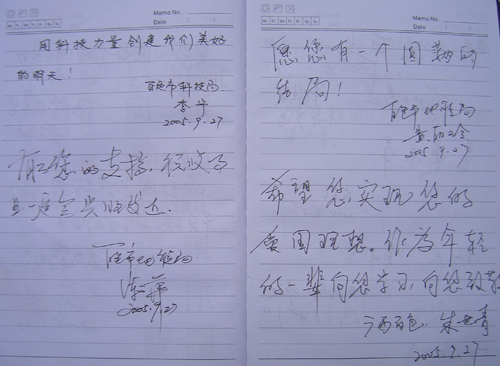 Memo No.
Date
用科技力量创建我们美好
的明天！
百色市科技局
李华
2005.9.27
有您的支持，税收事
业一定会兴旺发达.
百色市地税局
2005.9.27
Memo No.
Date
愿您有一个圆满的
结局！
百色市地税局
2005.9.27
希望您实现您的
爱国理想。作为年轻
的一辈向您学习，向您致敬
广西百色 朱世青
2005.9.27